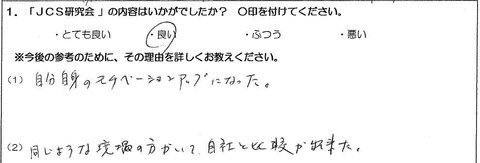 1．「ＪＣＳ研究会」の内容はいかがでしたか？ 〇印を付けてください。
・とても良い ・良い ・ふつう ・悪い
※今後の参考のために、その理由を詳しくお教えください。
(1) 自分自身のモチベーションアップになった。
(2) 同じような境遇の方がいて、自社と比較が出来た。